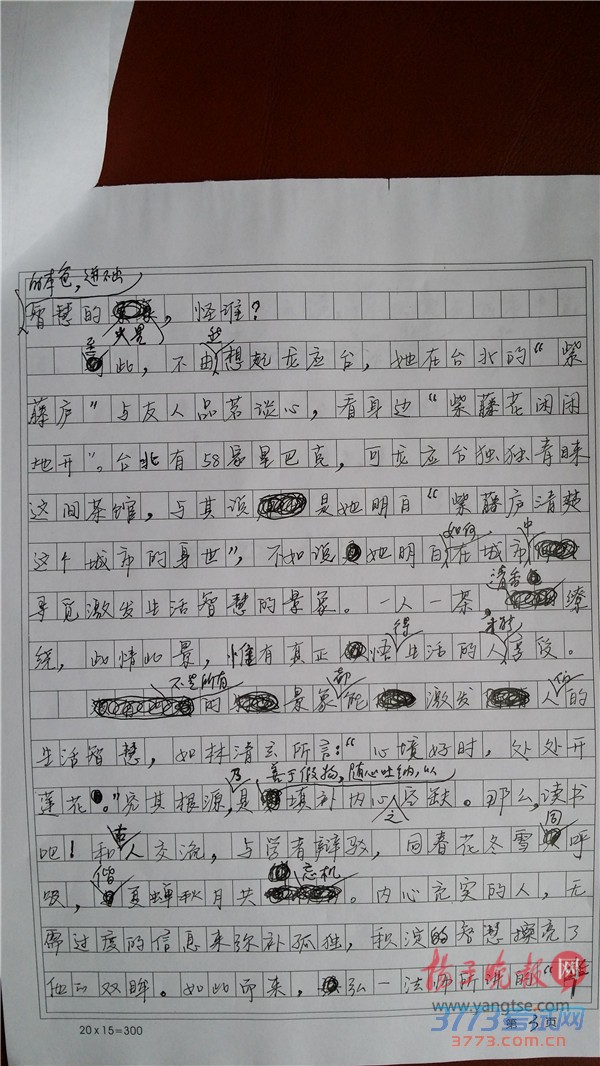 的本色,迸不出
智慧的火星,怪谁?
至此,不由然想起龙应台,她在台北的“紫
藤庐”与友人品茗谈心,看身边“紫藤花闲闲
地开”。台北有58家星巴克,可龙应台独独青睐
这间茶馆,与其说是她明白“紫藤庐清楚
这个城市的身世”,不如说她明白如何在城市中
寻觅激发生活智慧的景象。一人一茶,清香缭
绕,此情此景,惟有真正悟得生活的人才能
不是所有的景象都能激发人的
生活智慧,如林清玄所言:“心境好时,处处开
莲花。”究其根源,乃是善于假物,随心吐纳,以填补内心之空缺。那么,读书
吧!和古人交流,与学者辩驳,同春花冬雪同呼
吸,偕夏蝉秋月共忘机。内心充实的人,无
需过度的信息来弥补孤独,积淀的智慧擦亮了
他的双眸。如此而来,弘一法师所说的“华
20×15=300
第3页
扬子晚报网
www.yangtse.com
3773考试网
3773.com.cn